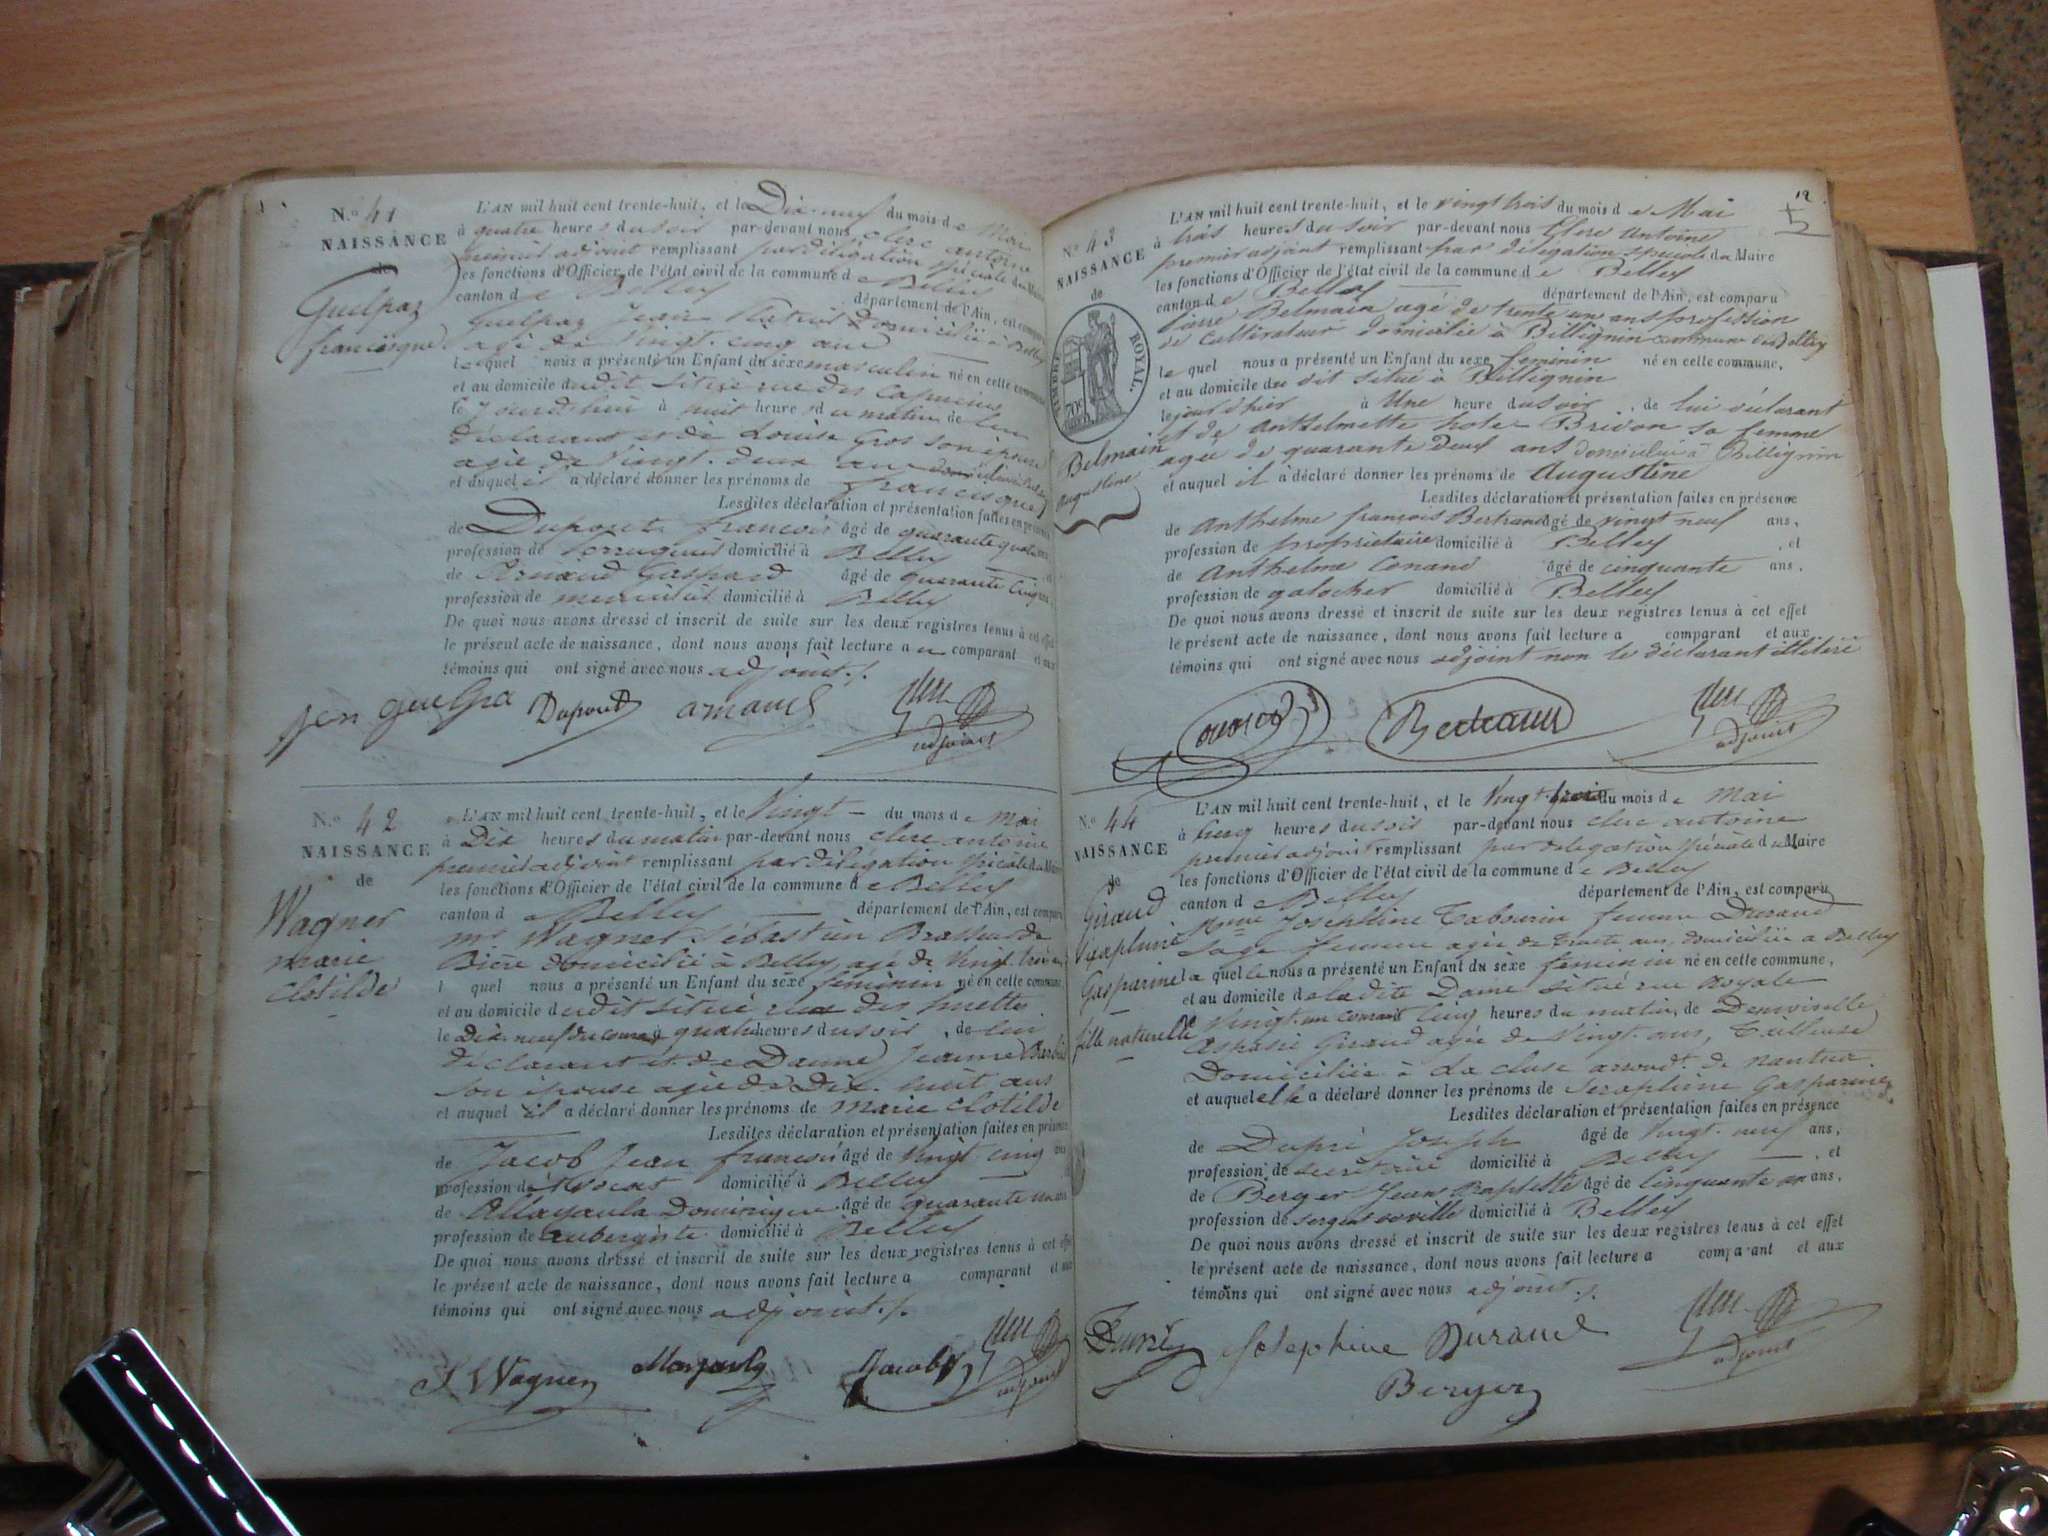 N.° 41
NAISSANCE
de
Guelpaz
francisque
L'AN mil huit cent trente-huit, et le Dix-neuf du mois de Mai
à quatre heures du soir par-devant nous clerc antoine
premier adjoint remplissant par délégation spéciale du Maire
les fonctions d'Officier de l'état civil de la commune de Belley
canton de Belley département de l'Ain, est comparu
Guelpaz Jean domicilié à Belley
agé de Vingt cinq ans
lequel nous a présenté un Enfant du sexe masculin né en cette commune
et au domicile dudit situé rue des Capucins
le jourd'hui à huit heures du matin de lui
déclarant et de Louise Gros son épouse
agée de Vingt-deux ans
et auquel il a déclaré donner les prénoms de francisque
Lesdites déclaration et présentation faites en présence
de Duport françois âgé de quarante quatre
profession de domicilié à Belley
de Arnaud Gaspard âgé de quarante cinq
profession de menuisier domicilié à Belley
De quoi nous avons dressé et inscrit de suite sur les deux registres tenus à cet effet
le présent acte de naissance, dont nous avons fait lecture au comparant et aux
témoins qui ont signé avec nous adjoint./.
Duport arnaud Clerc
adjoint
N.° 42
NAISSANCE
de
Wagner
marie
Clotilde
L'AN mil huit cent trente-huit, et le Vingt du mois de Mai
à Dix heures du matin par-devant nous clerc antoine
premier adjoint remplissant par délégation spéciale du Maire
les fonctions d'Officier de l'état civil de la commune de Belley
canton de Belley département de l'Ain, est comparu
mr Wagner Sébastien Brasseur de
Bière domicilié à Belley, agé de Vingt trois ans
l quel nous a présenté un Enfant du sexe féminin né en cette commune
et au domicile dudit situé rue des
le Dix neuf du courant à quatre heures du soir, de lui
déclarant et de Dame Jeanne
son épouse agée de Dix huit ans
et auquel il a déclaré donner les prénoms de marie Clotilde
Lesdites déclaration et présentation faites en présence
de Jacob Jean françois âgé de Vingt cinq ans
profession de Avocat domicilié à Belley
de Dominique âgé de quarante un ans
profession de aubergiste domicilié à Belley
De quoi nous avons dressé et inscrit de suite sur les deux registres tenus à cet effet
le présent acte de naissance, dont nous avons fait lecture a comparant et aux
témoins qui ont signé avec nous adjoint./.
S. Wagner Jacob Clerc
adjoint
12
N.° 43
NAISSANCE
de
TIMBRE ROYAL.
70c
Belmain
Augustine
L'AN mil huit cent trente-huit, et le vingt trois du mois de Mai
à trois heures du soir par-devant nous Clerc Antoine
premier adjoint remplissant par délégation spéciale du Maire
les fonctions d'Officier de l'état civil de la commune de Belley
canton de Belley département de l'Ain, est comparu
Pierre Belmain agé de trente un ans profession
de cultivateur domicilié à Billignin commune de Belley
le quel nous a présenté un Enfant du sexe feminin né en cette commune,
et au domicile du dit situé à Billignin
le jour d'hier à Une heure du soir, de lui déclarant
et de Anthelmette Brivon sa femme
agée de quarante deux ans domiciliée à Billignin
et auquel il a déclaré donner les prénoms de Augustine
Lesdites déclaration et présentation faites en présence
de Anthelme françois Bertrand âgé de vingt neuf ans,
profession de propriétaire domicilié à Belley, et
de Anthelme Conand âgé de cinquante ans,
profession de galocher domicilié à Belley
De quoi nous avons dressé et inscrit de suite sur les deux registres tenus à cet effet
le présent acte de naissance, dont nous avons fait lecture a comparant et aux
témoins qui ont signé avec nous adjoint non le déclarant illiteré
Bertrand Clerc
adjoint
N.° 44
NAISSANCE
de
Giraud
Séraphine
Gasparine
fille naturelle
L'AN mil huit cent trente-huit, et le Vingt-trois du mois de Mai
à Cinq heures du soir par-devant nous clerc antoine
premier adjoint remplissant par délégation spéciale du Maire
les fonctions d'Officier de l'état civil de la commune de Belley
canton de Belley département de l'Ain, est comparu
Mme Joséphine Tabourin femme Durand
Sage femme agée de trente ans, domiciliée à Belley
la quelle nous a présenté un Enfant du sexe feminin né en cette commune,
et au domicile de ladite Dame situé rue Royale
Vingt-un courant Cinq heures du matin, de Demoiselle
Aspasie Giraud agée de Vingt ans, Tailleuse
Domiciliée à La cluse arrondt. de nantua
et auquel elle a déclaré donner les prénoms de Seraphine Gasparine
Lesdites déclaration et présentation faites en présence
de Dupré Joseph âgé de Vingt-neuf ans,
profession de secrétaire domicilié à Belley, et
de Berger Jean Baptiste âgé de Cinquante un ans,
profession de sergent de ville domicilié à Belley
De quoi nous avons dressé et inscrit de suite sur les deux registres tenus à cet effet
le présent acte de naissance, dont nous avons fait lecture a comparant et aux
témoins qui ont signé avec nous adjoint./.
Dupré Joséphine Durand Clerc
adjoint
Berger